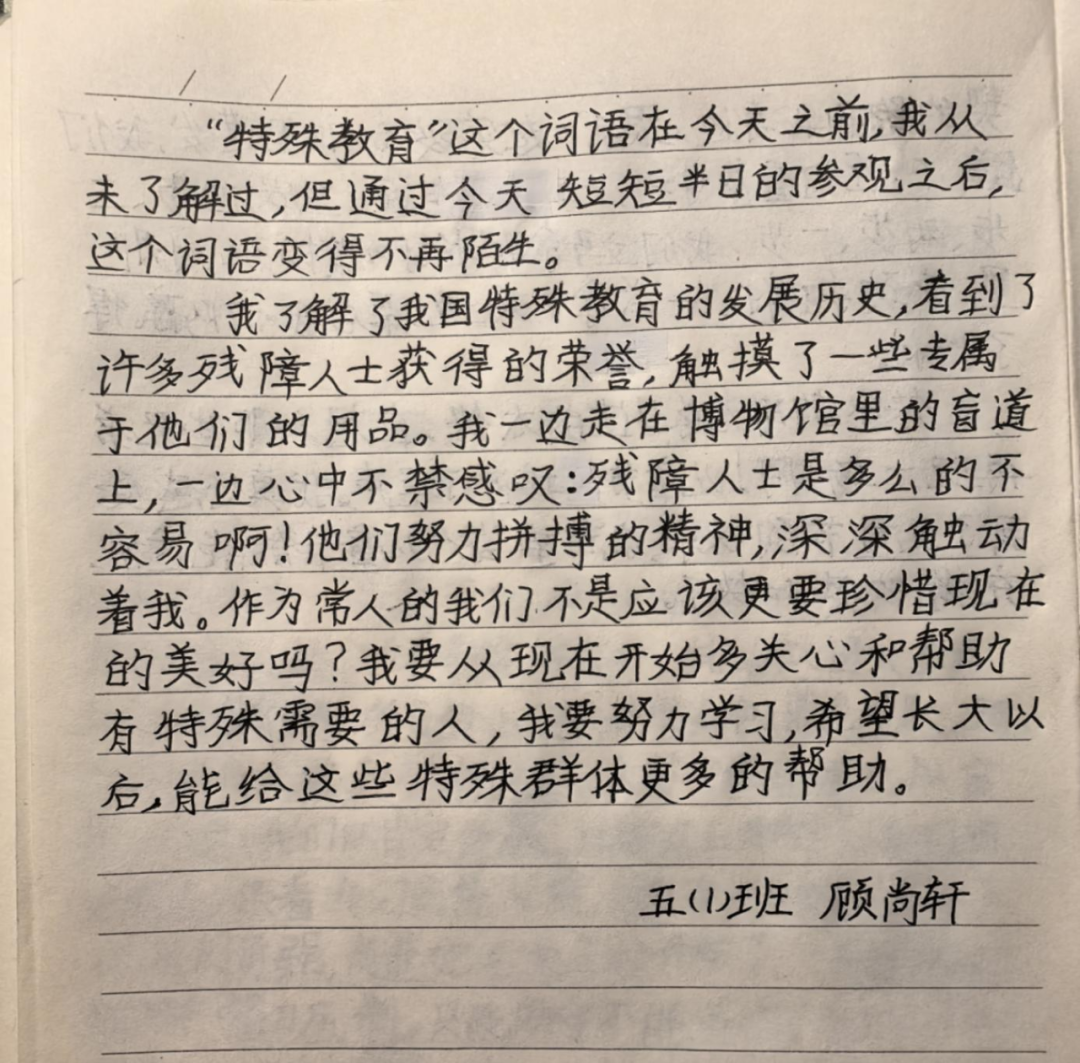 “特殊教育”这个词语在今天之前,我从
未了解过,但通过今天 短短半日的参观之后,
这个词语变得不再陌生。
我了解了我国特殊教育的发展历史,看到了
许多残障人士获得的荣誉,触摸了一些专属
于他们的用品。我一边走在博物馆里的盲道
上,一边心中不禁感叹:残障人士是多么的不
容易啊!他们努力拼搏的精神,深深触动
着我。作为常人的我们不是应该更要珍惜现在
的美好吗?我要从现在开始多关心和帮助
有特殊需要的人,我要努力学习,希望长大以
后,能给这些特殊群体更多的帮助。
五(1)班 顾尚轩